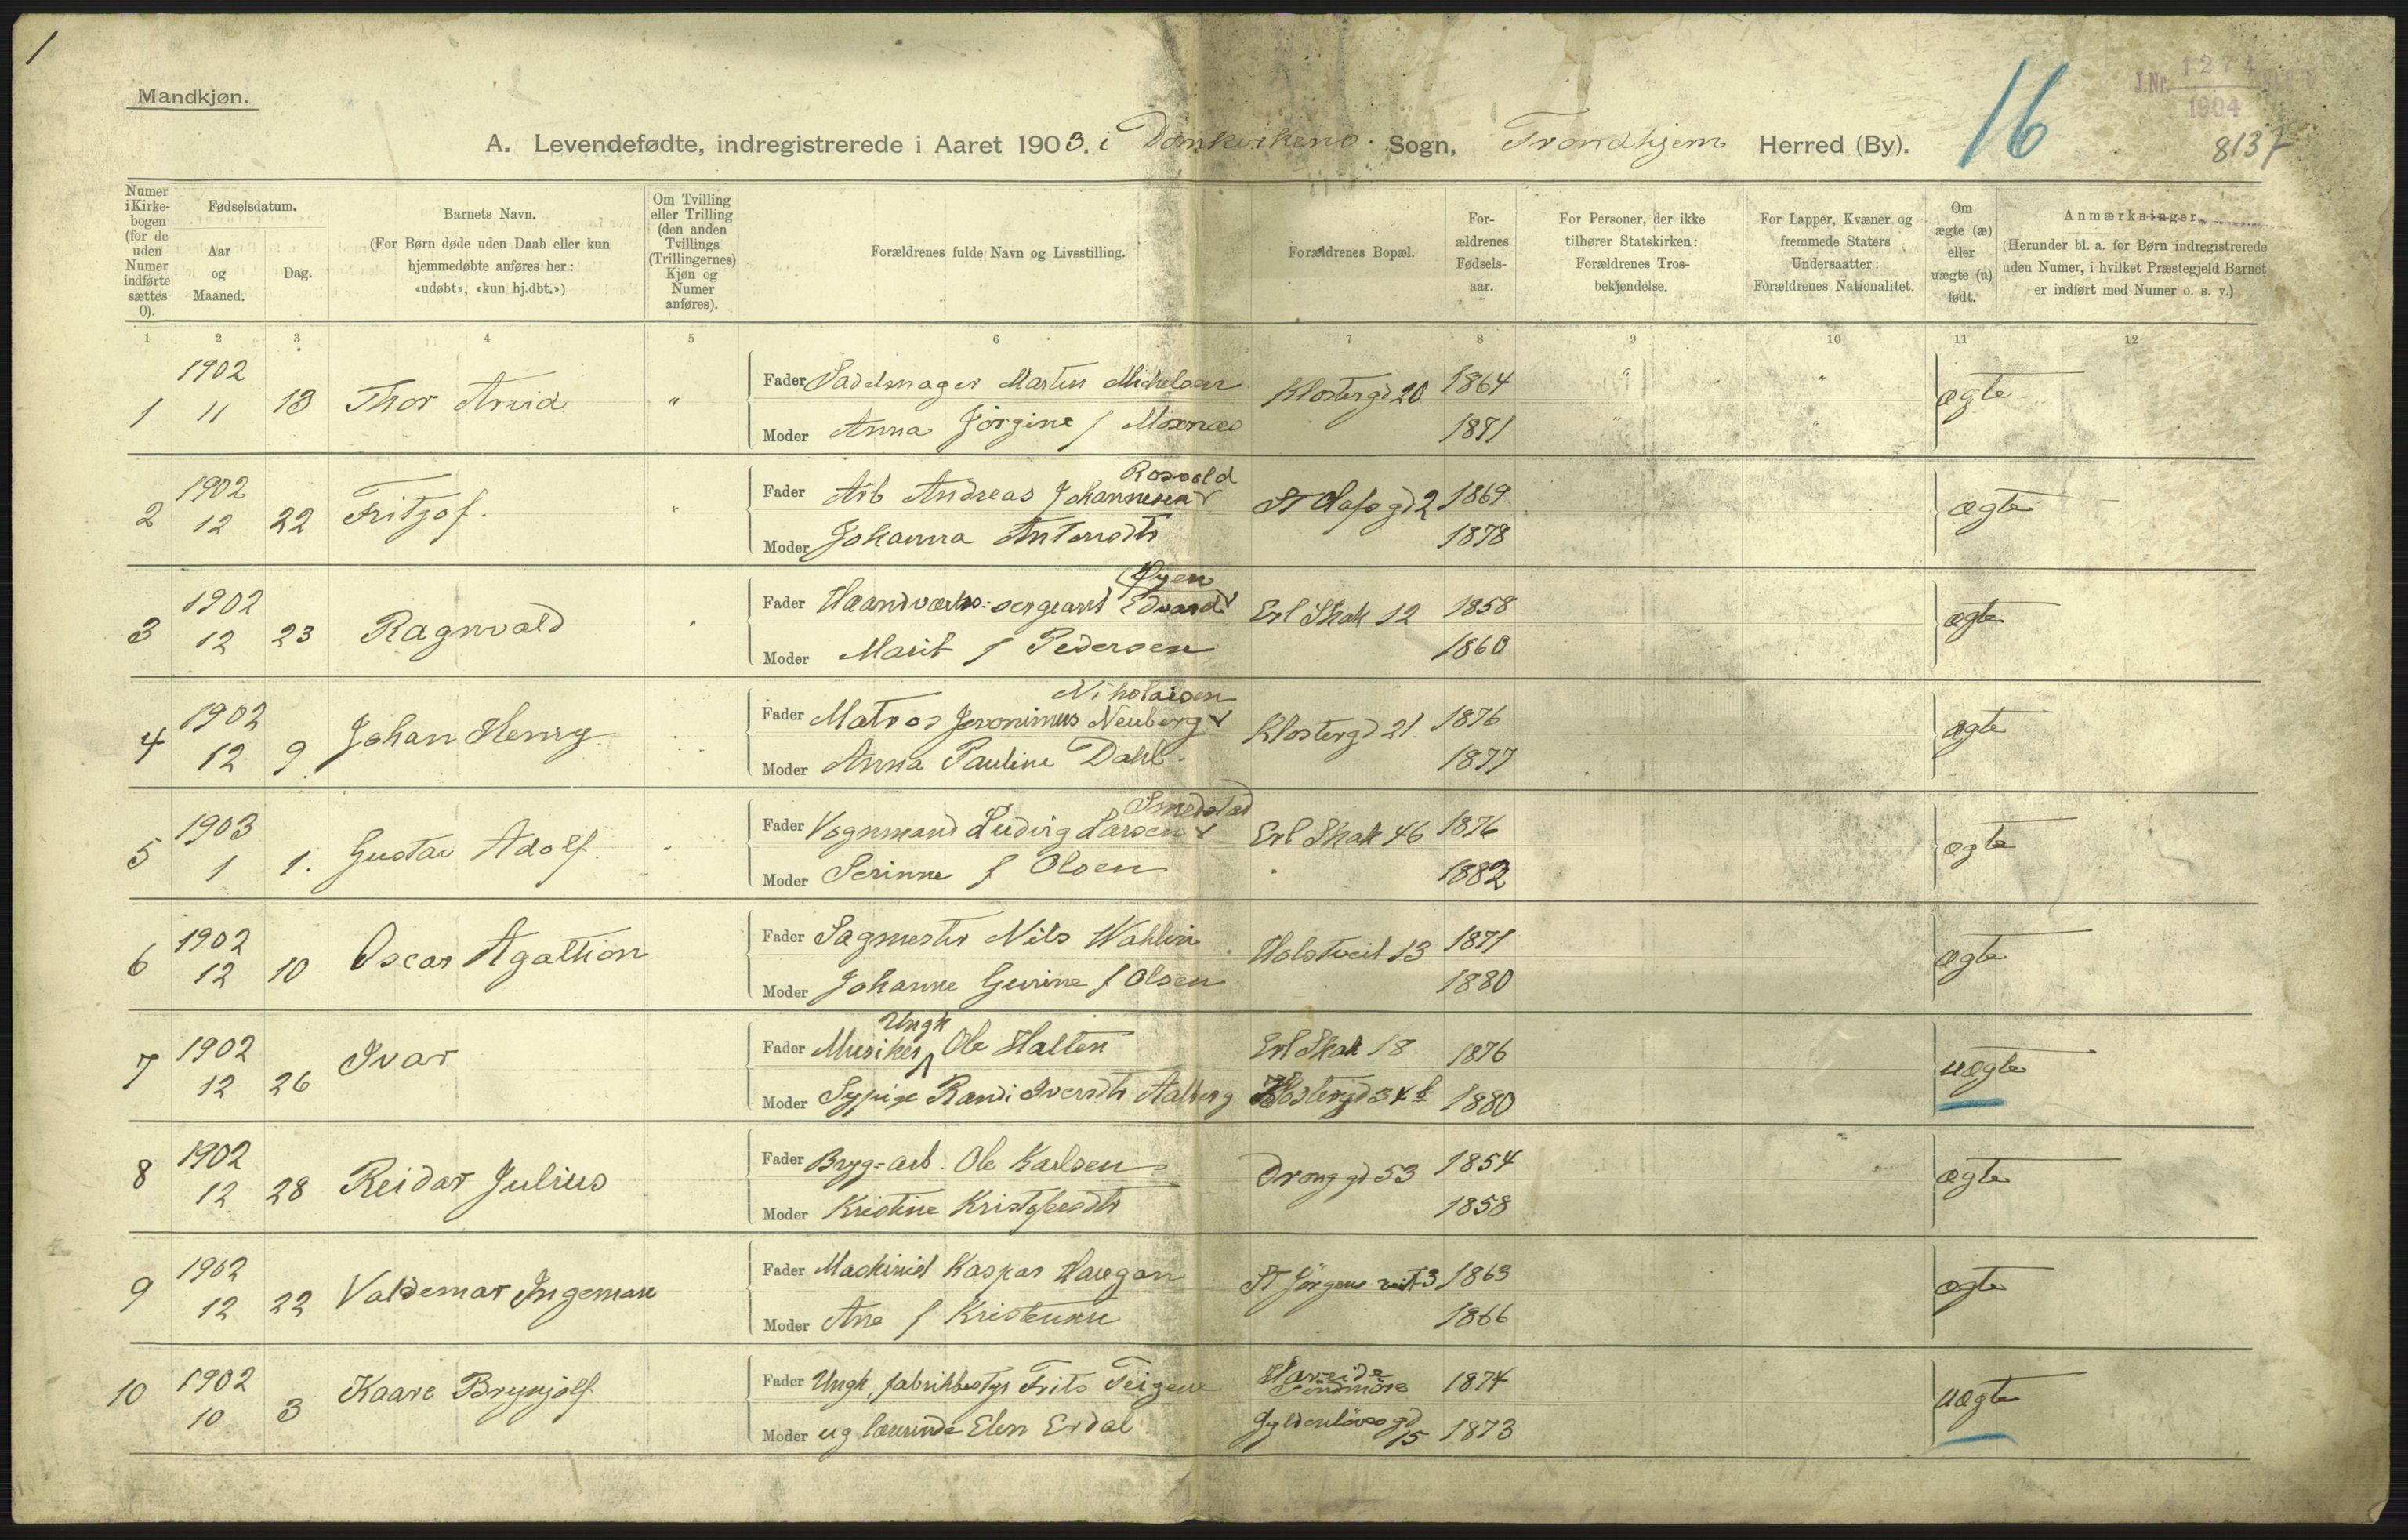 1
Mandkjøn.
16
J.Nr. 1274
1904
8137
A. Levendefødte, indregistrerede i Aaret 1903. i Domkirkens Sogn, Trondhjem Herred (By).
Numer i Kirkebogen (for de uden Numer indførte sættes 0).
Fødselsdatum.
Aar og Maaned.
Dag.
Barnets Navn.
(For Børn døde uden Daab eller kun hjemmedøbte anføres her: «udøbt», «kun hj.dbt.»)
Om Tvilling eller Trilling (den anden Tvillings (Trillingernes) Kjøn og Numer anføres).
Forældrenes fulde Navn og Livsstilling.
Forældrenes Bopæl.
Forældrenes Fødselsaar.
For Personer, der ikke tilhører Statskirken: Forældrenes Trosbekjendelse.
For Lapper, Kvæner og fremmede Staters Undersaatter: Forældrenes Nationalitet.
Om ægte (æ) eller uægte (u) født.
Anmærkninger
(Herunder bl. a. for Børn indregistrerede uden Numer, i hvilket Præstegjeld Barnet er indført med Numer o. s. v.)
1 2 3 4 5 6 7 8 9 10 11 12
1 1902 11 13 Thor Arvid "
Fader Sadelmager Martin Michelsen Klostergd 20 1864 " " ægte
Moder Anna Jörgine f Moxnæs 1871 " "
2 1902 12 22 Fritjof. "
Fader Arb Andreas Johannesen Rosvold St Olafs gd 2 1869 ægte
Moder Johanna Antonsdtr 1878
3 1902 12 23 Ragnvald
Fader Haandværks: sergeant Edvard Øyen Erl Skak 12 1858 ægte
Moder Marit f Pedersen 1860
4 1902 12 9. Johan Henry
Fader Matros Jeronimus Neuberg Nikolaisen Klostergd 21. 1876 ægte
Moder Anna Pauline Dahl. 1877
5 1903 1 1. Gustav Adolf.
Fader Vognmand Ludvig Larsen Smedstad Erl Skak 46 1876 ægte
Moder Serinne f Olsen 1882
6 1902 12 10 Oscar Agathon
Fader Sagmester Nils Wahlin Holstveit 13 1871 ægte
Moder Johanne Gurine f Olsen 1880
7 1902 12 26 Ivar
Fader Musiker Ungk Ole Halten Erl Skak 18 1876 uægte
Moder Sypige Randi Iversdtr Aalberg Klostergd 34 b 1880
8 1902 12 28 Reidar Julius
Fader Bryg-arb. Ole Karlsen Dronggd 53 1854 ægte
Moder Kristine Kristofersdtr 1858
9 1902 12 22 Valdemar Ingeman
Fader Maskinist Kaspar Haugan St Jörgens veit 3 1863 ægte
Moder Ane f Kristensen 1866
10 1902 10 3 Kaare Brynjolf
Fader Ungk, fabrikbestyr Frits Teigene Hareide Söndmöre 1874 uægte
Moder ug lærerinde Elen Erdal Gyldenlöves gd 15 1873